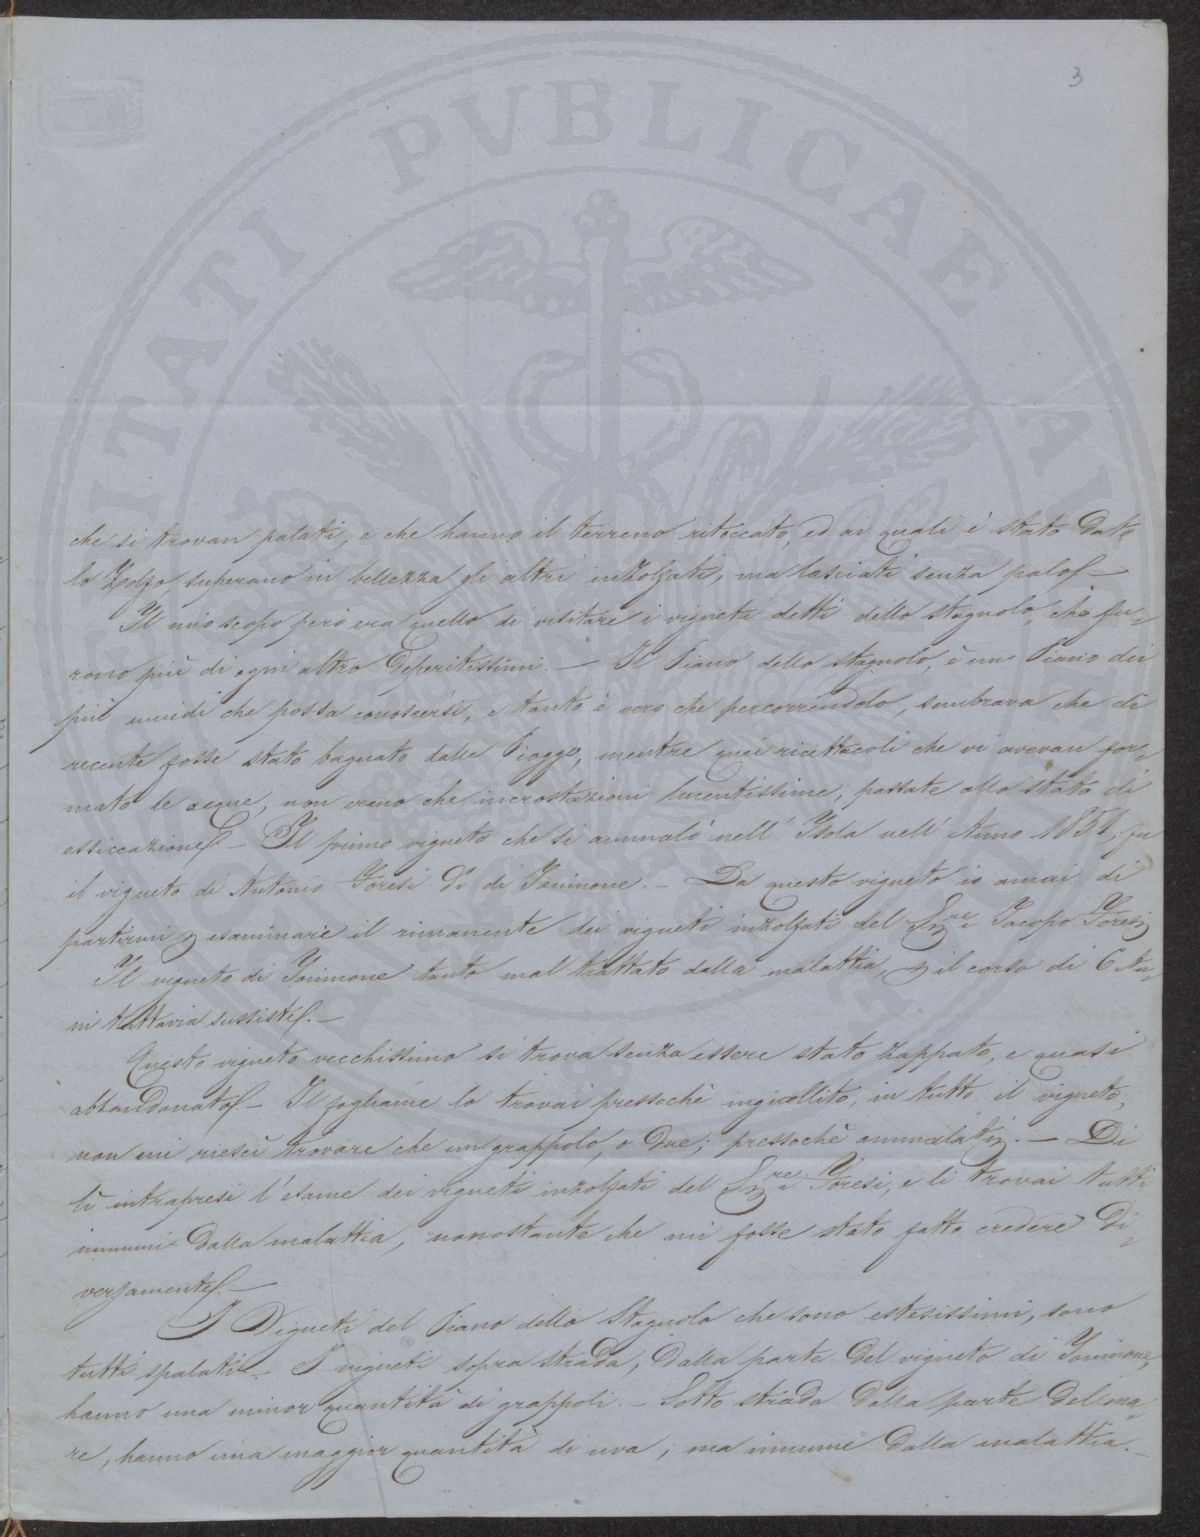 3
PROSPERITATI PVBLICAE AVGENDAE
che si trovan palati, e che hanno il terreno ritoccato, ed ai quali è stato dato
lo Zolfo, superano in bellezza gli altri inzolfati, ma lasciati senza palo. —
Il mio scopo però era quello di visitare i vigneti detti dello stagnolo, che fu-
rono più di ogni altro deperitissimi. — Il Piano dello stagnolo, è un Piano dei
più umidi che possa conoscersi, e tanto è vero che percorrendolo, sembrava che di
recente fosse stato bagnato dalle Piogge, mentre quei ricettacoli che vi avevan for-
mato le acque, non erano che incrostazioni lucentissime, passate allo stato di
essiccazione. — Il primo vigneto che si ammalò nell' Isola nell' Anno 1851, fu
il vigneto di Antonio Foresi do di Tonimone. — Da questo vigneto io amai di
partirmi p esaminare il rimanente dei vigneti inzolfati del Sigre Jacopo Foresi
Il vigneto di Tonimone tanto mal trattato dalla malattia, p il corso di 6 An-
ni tuttavia sussiste. —
Questo vigneto vecchissimo si trova senza essere stato zappato, e quasi
abbandonato — Il fogliame lo trovai pressochè ingiallito, in tutto il vigneto,
non mi riescì trovare che un grappolo, o due; pressochè ammalati. — Di
lì intrapresi l'esame dei vigneti inzolfati del Sigre Foresi, e li trovai tutti
immuni dalla malattia, nonostante che mi fosse stato fatto credere di-
versamente. —
I Vigneti del Piano dello Stagnolo che sono estesissimi, sono
tutti spalati. — I vigneti sopra strada, dalla parte del vigneto di Tonimone,
hanno una minor quantità di grappoli. — Sotto strada dalla parte del ma-
re, hanno una maggior quantità di uva, ma immune dalla malattia. —